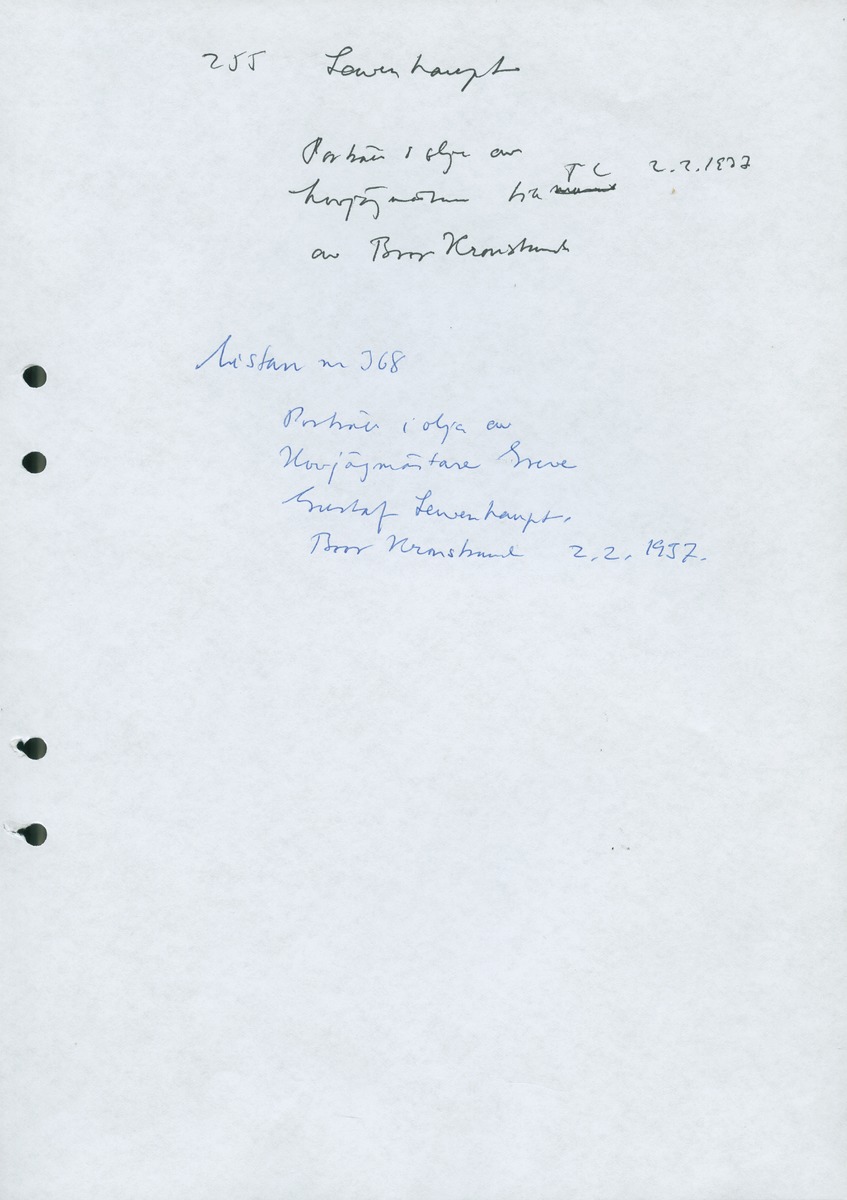 255 Lewenhaupt
Porträtt i olja av
TC 2.2.1937
hovjägmästaren
av Bror Kronstrand
Listan nr 368
Porträtt i olja av
Hovjägmästare Greve
Gustaf Lewenhaupt.
Bror Kronstrand 2.2.1937.